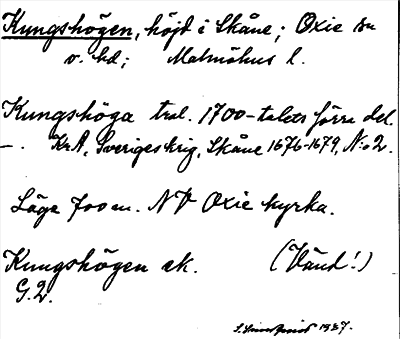 Kungshögen, höjd i Skåne; Oxie sn
o. hd; Malmöhus l.
Kungshöga trol. 1700-talets förra del.
–. KrA, Sveriges krig, Skåne 1676-1679, N:o 2.
Läge 700 m. NV Oxie kyrka.
Kungshögen ek. (Vänd!)
G.2.
1937.